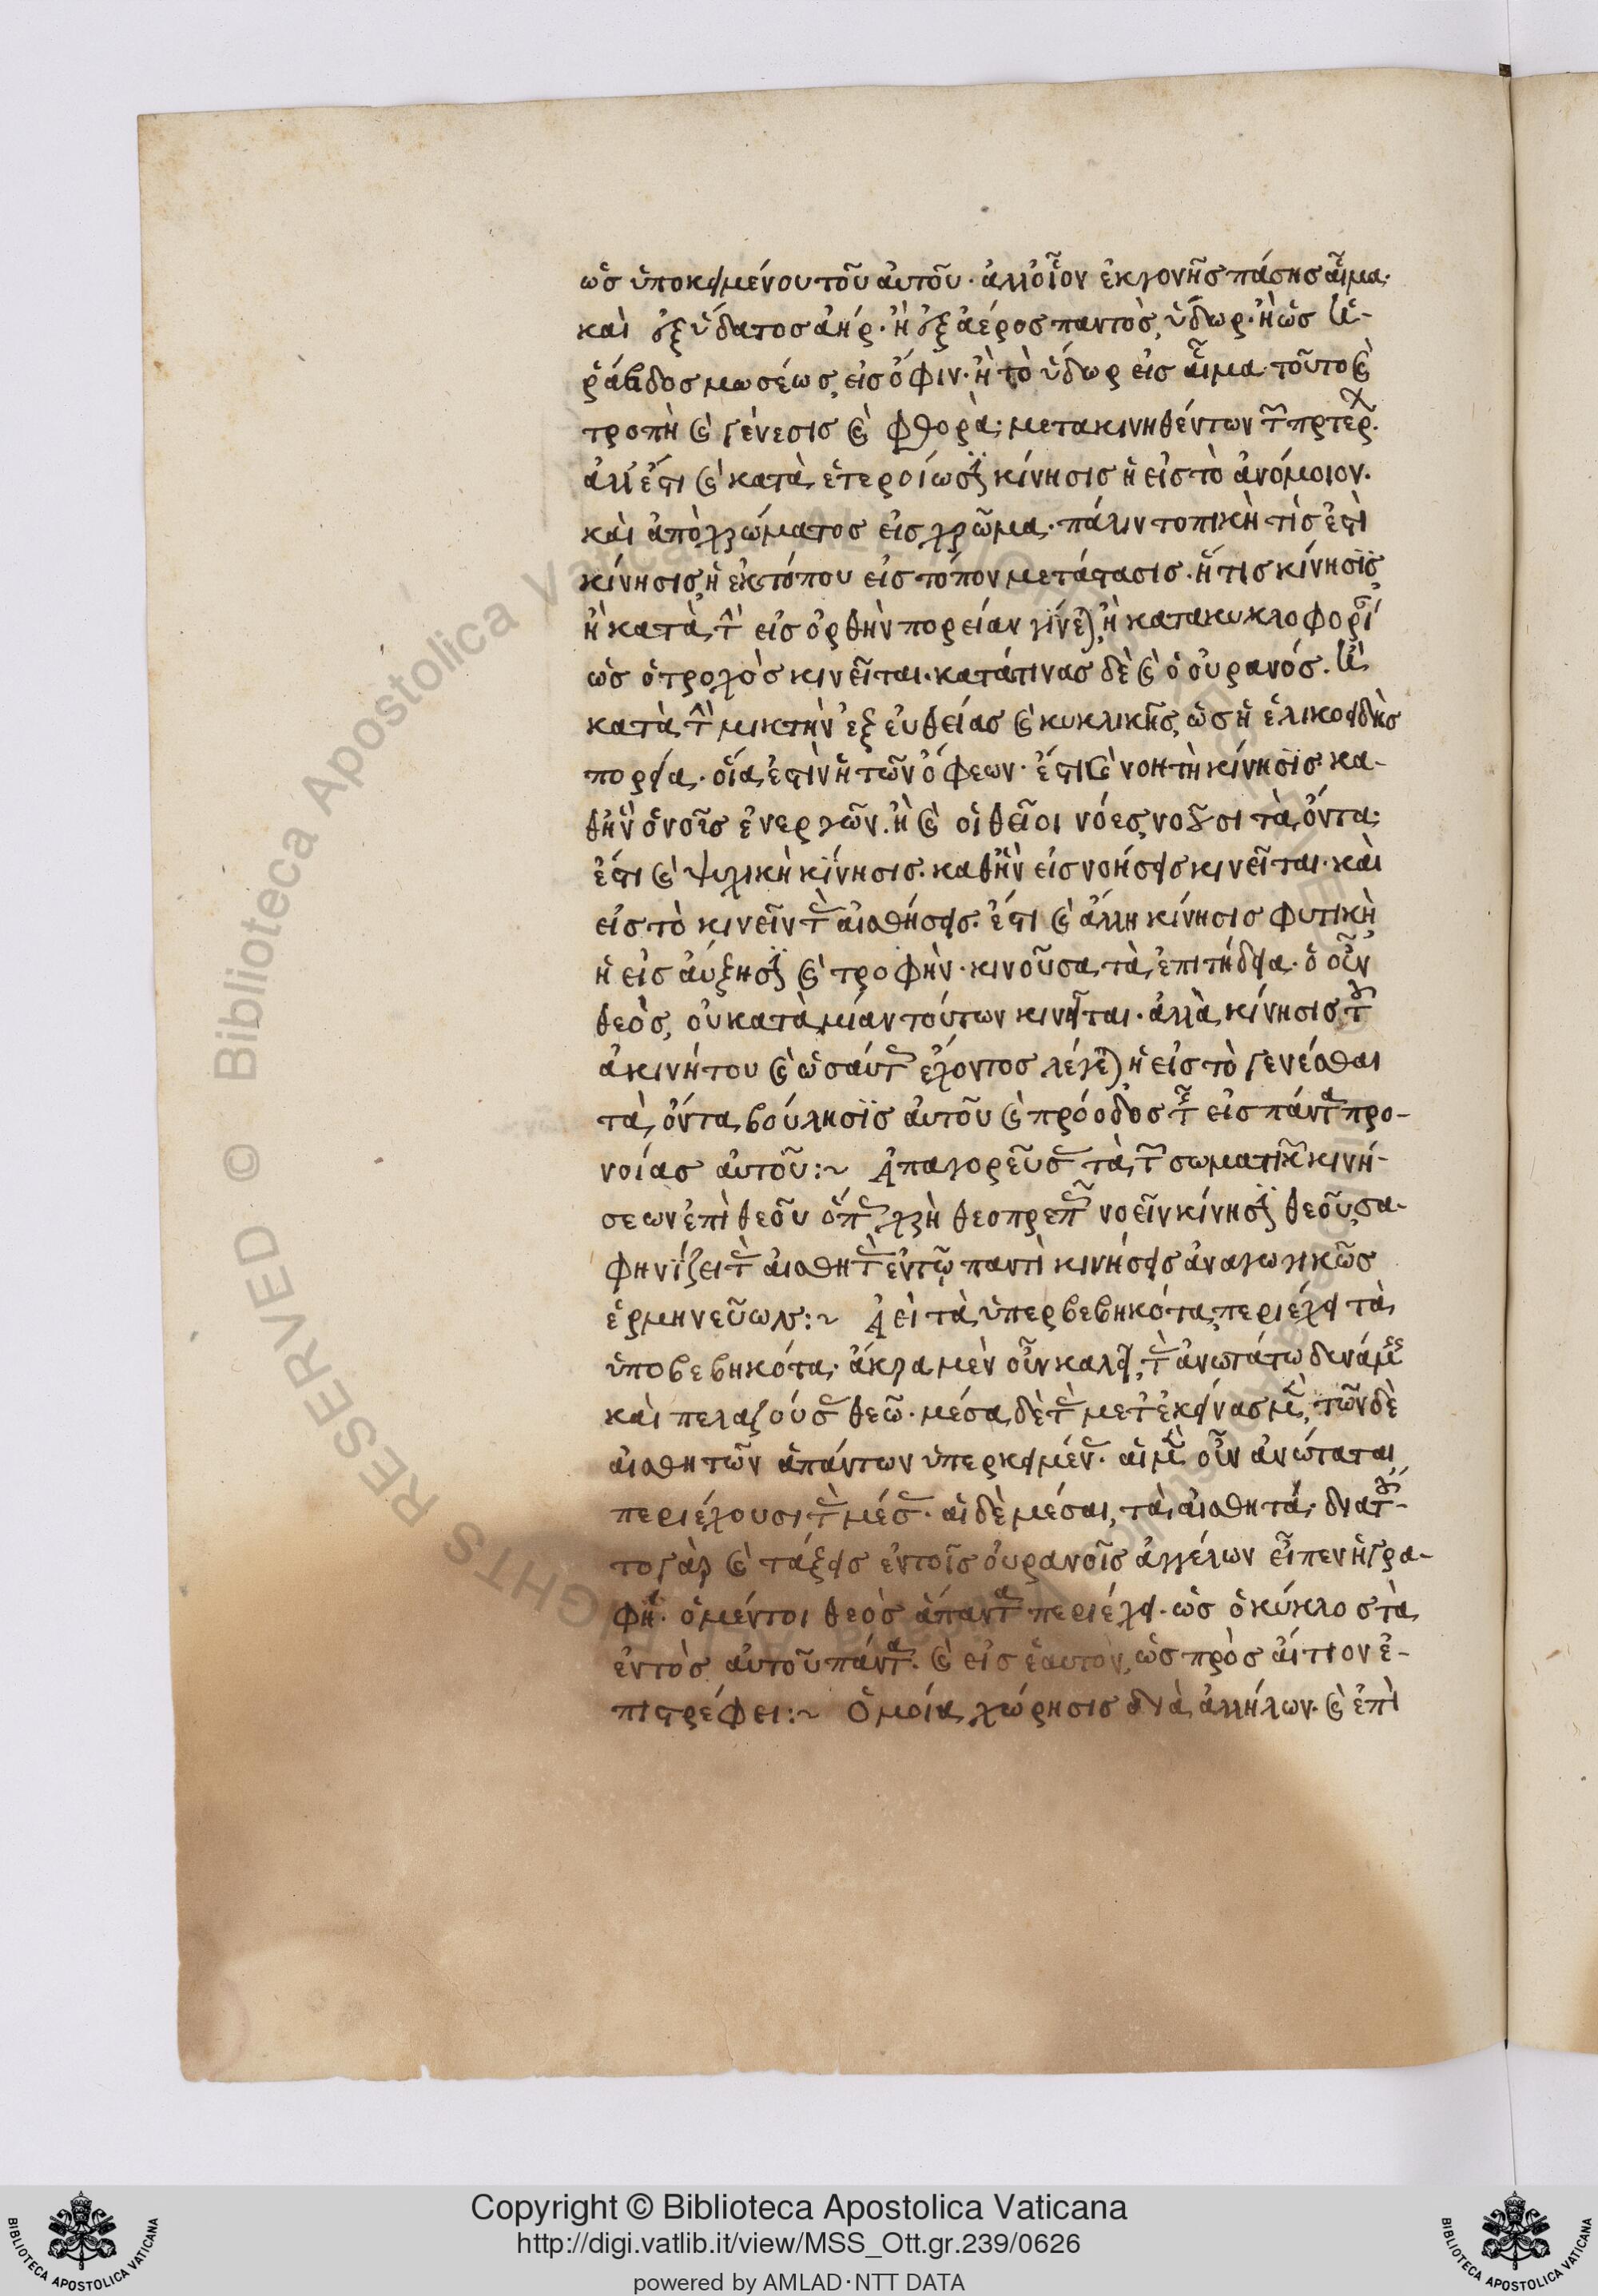 ὡς ὑποκειμένου τοῦ αὐτοῦ· ἀλλοῖον ἐκ γονῆς πάσης αἷμα·
καὶ ἐξ ὕδατος ἀήρ· ἢ ἐξ ἀέρος παντὸς, ὕδωρ· ἢ ὡς ἡ
ῥάβδος μωσέως, εἰς ὄφιν· ἢ τὸ ὕδωρ εἰς αἷμα· τοῦτο καὶ
τροπὴ καὶ γένεσις καὶ φθορὰ· μετακινηθέντων τῶν
ἀλλ' ἔστι καὶ κατὰ ἑτεροίωσιν κίνησις ἡ εἰς τὸ ἀνόμοιον·
καὶ ἀπὸ χρώματος εἰς χρῶμα· πάλιν τοπικὴ τίς ἐστι
κίνησις, ἡ ἐκ τόπου εἰς τόπον μετάστασις· ἥτις κίνησις
ἢ κατὰ τὴν εἰς ὀρθὴν πορείαν γίνεται, ἢ κατα κυκλοφορίαν
ὡς ὁ τροχὸς κινεῖται· κατά τινας δὲ καὶ ὁ οὐρανός· ἢ
κατὰ τὴν μικτὴν ἐξ εὐθείας καὶ κυκλικῆς, ὡς ἡ ἑλικοειδὴς
πορεία· οἵα ἐστὶν ἡ τῶν ὄφεων· ἔστι καὶ νοητὴ κίνησις κα-
θ' ἣν ὁ νοῦς ἐνεργῶν· ἢ καὶ οἱ θεῖοι νόες, νοοῦσι τὰ ὄντα·
ἔστι καὶ ψυχικὴ κίνησις· καθ' ἣν εἰς νοήσεις κινεῖται· καὶ
εἰς τὸ κινεῖν τὰς αἰσθήσεις· ἔστι καὶ ἄλλη κίνησις φυτικὴ
ἡ εἰς αὔξησιν καὶ τροφὴν· κινοῦσα τὰ ἐπιτήδεια· ὁ οὖν
θεὸς, οὐ κατὰ μίαν τούτων κινεῖται· ἀλλὰ κίνησις τοῦ
ἀκινήτου καὶ ὡσαύτως ἔχοντος λέγεται ἡ εἰς τὸ γενέσθαι
τὰ ὄντα βούλησις αὐτοῦ καὶ πρόοδος τῆς εἰς πάντα προ-
νοίας αὐτοῦ:~ Ἀπαγορεύσας τὰς τῶν σωματικῶν κινή-
σεων ἐπὶ θεοῦ ὅπως χρὴ θεοπρεπῶς νοεῖν κίνησιν θεοῦ, σα-
φηνίζει τὰς αἰσθητὰς ἐν τῷ παντὶ κινήσεις ἀναγωγικῶς
ἑρμηνεύων:~ Ἀεὶ τὰ ὑπερβεβηκότα, περιέχει τὰ
ὑποβεβηκότα· ἄκρα μὲν οὖν καλεῖ, τὰς ἀνωτάτω δυνάμεις
καὶ πελαζούσας θεῷ· μέσα δὲ τὰς μετ' ἐκείνας μὲν, τῶν δὲ
αἰσθητῶν ἁπάντων ὑπερκειμένας· αἱ μὲν οὖν ἀνώταται
περιέχουσι τὰς μέσας· αἱ δὲ μέσαι, τὰ αἰσθητά· δια τοῦ-
το γὰρ καὶ τάξεις ἐν τοῖς οὐρανοῖς ἀγγέλων εἶπεν ἡ γρα-
φὴ· ὁ μέντοι θεὸς ἅπαντα περιέχει· ὡς ὁ κύκλος τὰ
ἐντὸς αὐτοῦ πάντα· καὶ εἰς ἑαυτὸν, ὡς πρὸς αἴτιον ἐ-
πιστρέφει:~ Ὁμοία χώρησις διὰ ἀλλήλων· καὶ ἐπὶ
Copyright © Biblioteca Apostolica Vaticana
http://digi.vatlib.it/view/MSS_Ott.gr.239/0626
powered by AMLAD·NTT DATA